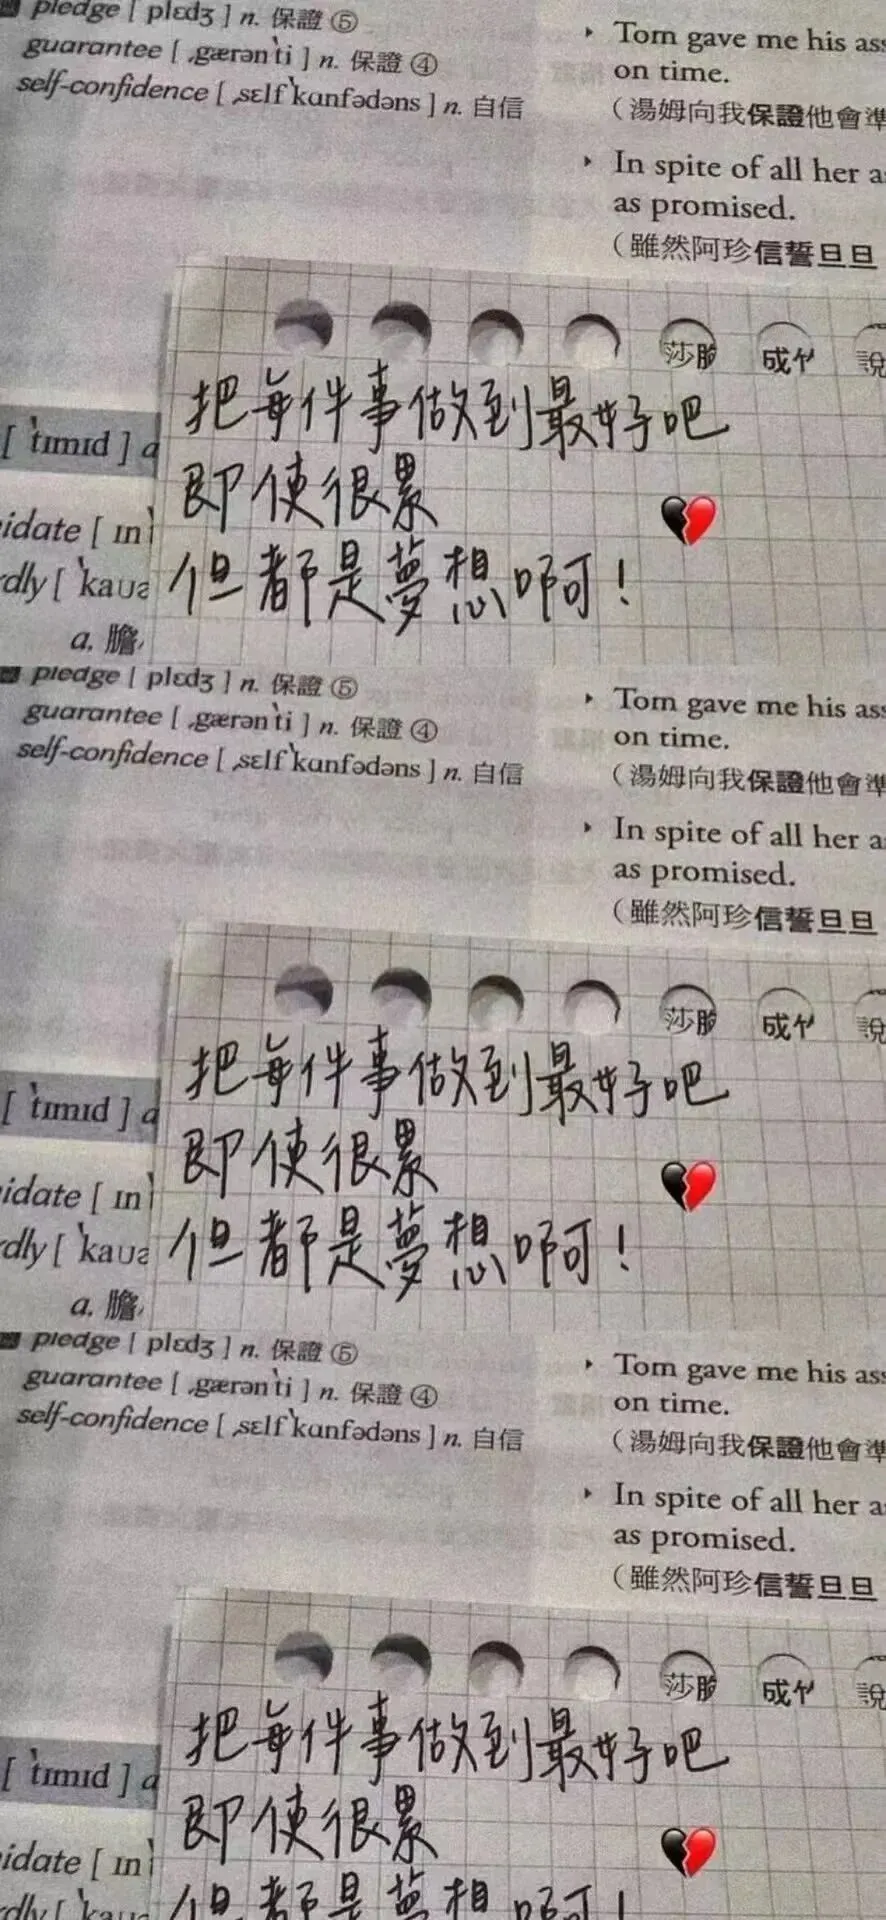 pledge [ plɛdʒ ] n. 保證 ⑤
guarantee [ ˌgærənˋti ] n. 保證 ④
self-confidence [ ˌsɛlfˋkɑnfədəns ] n. 自信
‣ Tom gave me his ass
on time.
(湯姆向我保證他會準
‣ In spite of all her as
as promised.
(雖然阿珍信誓旦旦
莎 成 說
把每件事做到最好吧
[ ˋtɪmɪd ] a
即使很累
idate [ ɪnˋ
但都是夢想啊!
rdly [ ˋkaʊɚ
a. 膽
pledge [ plɛdʒ ] n. 保證 ⑤
guarantee [ ˌgærənˋti ] n. 保證 ④
self-confidence [ ˌsɛlfˋkɑnfədəns ] n. 自信
‣ Tom gave me his ass
on time.
(湯姆向我保證他會準
‣ In spite of all her as
as promised.
(雖然阿珍信誓旦旦
莎 成 說
把每件事做到最好吧
[ ˋtɪmɪd ] a
即使很累
idate [ ɪnˋ
但都是夢想啊!
rdly [ ˋkaʊɚ
a. 膽
pledge [ plɛdʒ ] n. 保證 ⑤
guarantee [ ˌgærənˋti ] n. 保證 ④
self-confidence [ ˌsɛlfˋkɑnfədəns ] n. 自信
‣ Tom gave me his ass
on time.
(湯姆向我保證他會準
‣ In spite of all her as
as promised.
(雖然阿珍信誓旦旦
莎 成 說
把每件事做到最好吧
[ ˋtɪmɪd ] a
即使很累
idate [ ɪnˋ
但都是夢想啊!
rdly [ ˋkaʊɚ